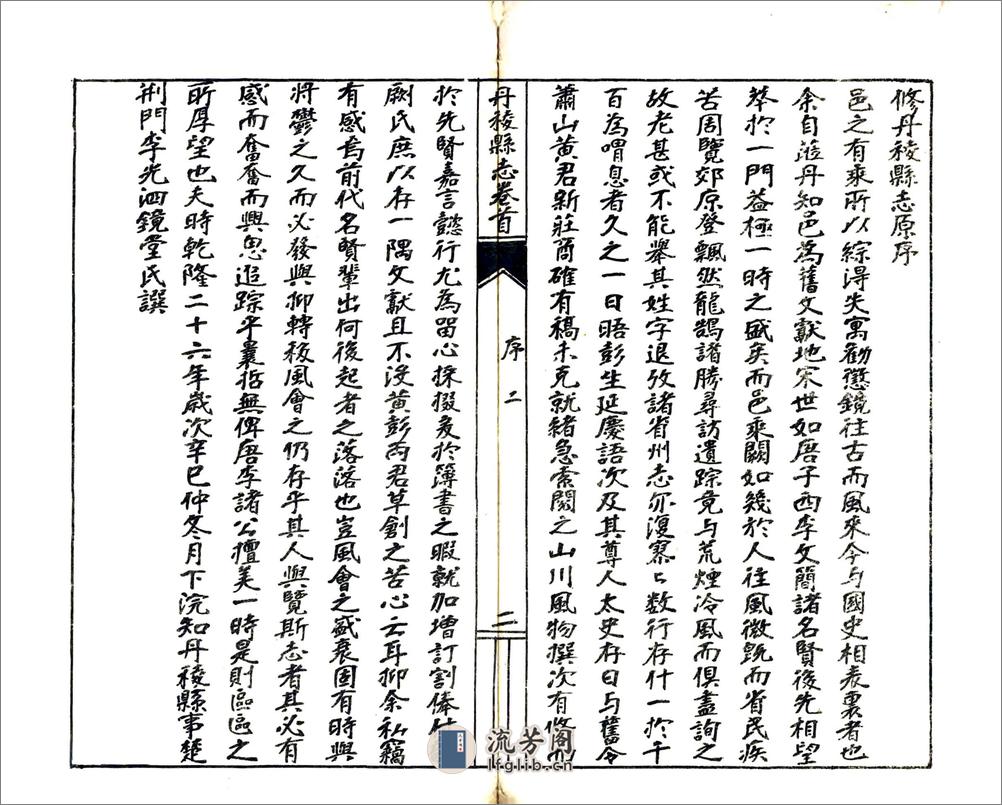 修丹稜縣志原序
邑之有乘所以綜得失寓勸懲鏡往古而風來今与國史相表裏者也
余自蒞丹知邑爲舊文獻地宋世如唐子西李文簡諸名賢後先相望
萃扵一門益極一時之盛矣而邑乘闕如幾於人往風微旣而省民疾
苦周覽郊原登飄然龍鵠諸勝尋訪遺踪竟与荒煙冷風而俱盡詢之
故老甚或不能舉其姓字退攷諸省州志亦復寥〻数行存什一扵千
百爲喟息者久之一日晤彭生延慶語次及其尊人太史存日与舊令
蕭山黄君新莊商確有稿未克就緒急索閱之山川風物撰次有條
丹稜縣志卷首
序 二
二
扵先賢嘉言懿行尤爲畱心採掇爰扵簿書之暇就加增訂割俸付
劂氏庶以存一隅文獻且不没黄彭两君草創之苦心云耳抑余私竊
有感焉前代名賢輩出何後起者之落落也豈風會之盛衰固有時與
將鬱之久而必發與抑轉移風會之仍存乎其人與覽斯志者其必有
感而奮奮而興思追踪乎曩哲無俾唐李諸公擅美一時是則區區之
所厚望也夫時乾隆二十六年歲次辛巳仲冬月下浣知丹稜縣事楚
荆門李光泗鏡堂氏譔
流芳阁
lfglib.cn